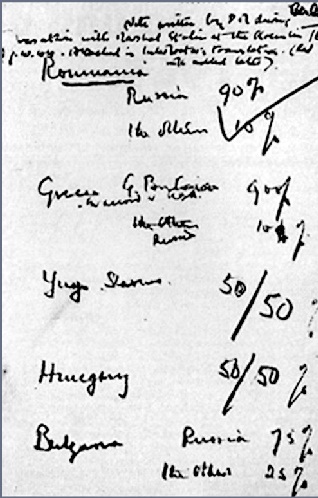 Note written by P.M. during
conversation with Marshal Stalin at the Kremlin
translation.
Roumania
Russia 90%
The others 10%
Greece G. Britain 90%
(in accord with USA)
The others
Russia 10%
Yugo Slavia 50/50 %
Hungary 50/50 %
Bulgaria Russia 75%
The others 25%